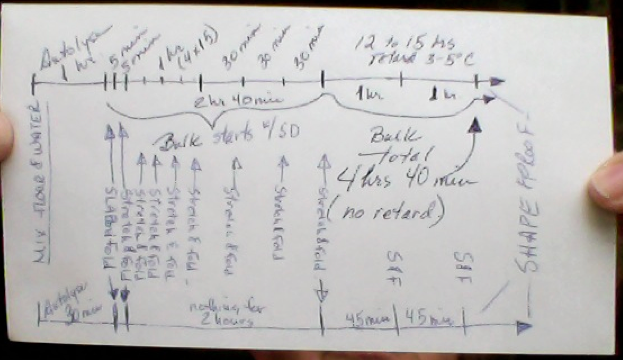 Autolyse
1 hr
5 min
5 min
1 hr
(4x15)
30 min
30 min
30 min
12 to 15 hrs
retard 3-5°C
2 hr 40 min
1 hr
1 hr
Bulk starts w/SD
Bulk
total
4 hrs 40 min
(no retard)
MIX FLOUR & WATER
Slap & Fold
Stretch & Fold
Stretch & Fold
Stretch & Fold
Stretch & Fold
Stretch & Fold
Stretch & Fold
Stretch & Fold
Stretch & Fold
S&F
S&F
SHAPE PROOF
Autolyse
30 min
nothing for
2 hours
45 min
45 min